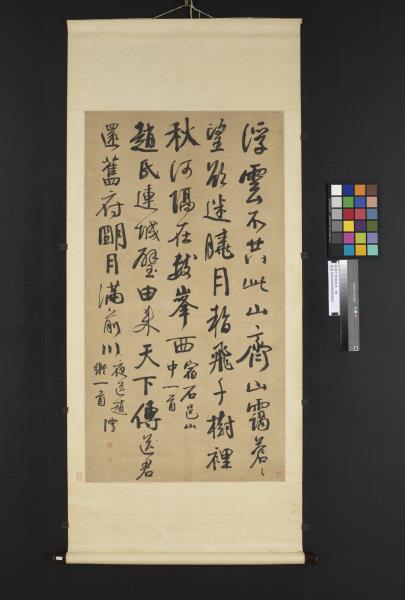 浮雲不共此山齊山靄蒼〻
望欲迷曉月暫飛千樹裡
秋河隔在數峯西
宿石邑山
中一首
趙氏連城璧由来天下傳送君
還舊府朙月滿前川
夜送趙
縱一首